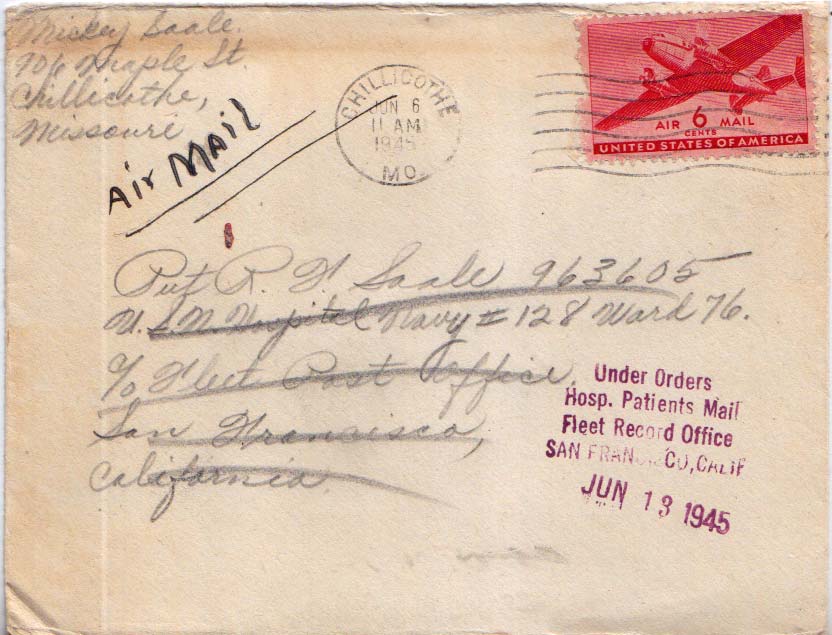 Mickey Saale.
906 Maple St.
Chillicothe,
Missouri
Air Mail
CHILLICOTHE
JUN 6
11 AM
1945
MO.
AIR 6 MAIL
CENTS
UNITED STATES OF AMERICA
Pvt R. W Saale 963605
U.S.N. Hospital Navy # 128 Ward 76.
c/o Fleet Post Office,
San Francisco,
California.
Under Orders
Hosp. Patients Mail
Fleet Record Office
SAN FRANCISCO, CALIF
JUN 13 1945